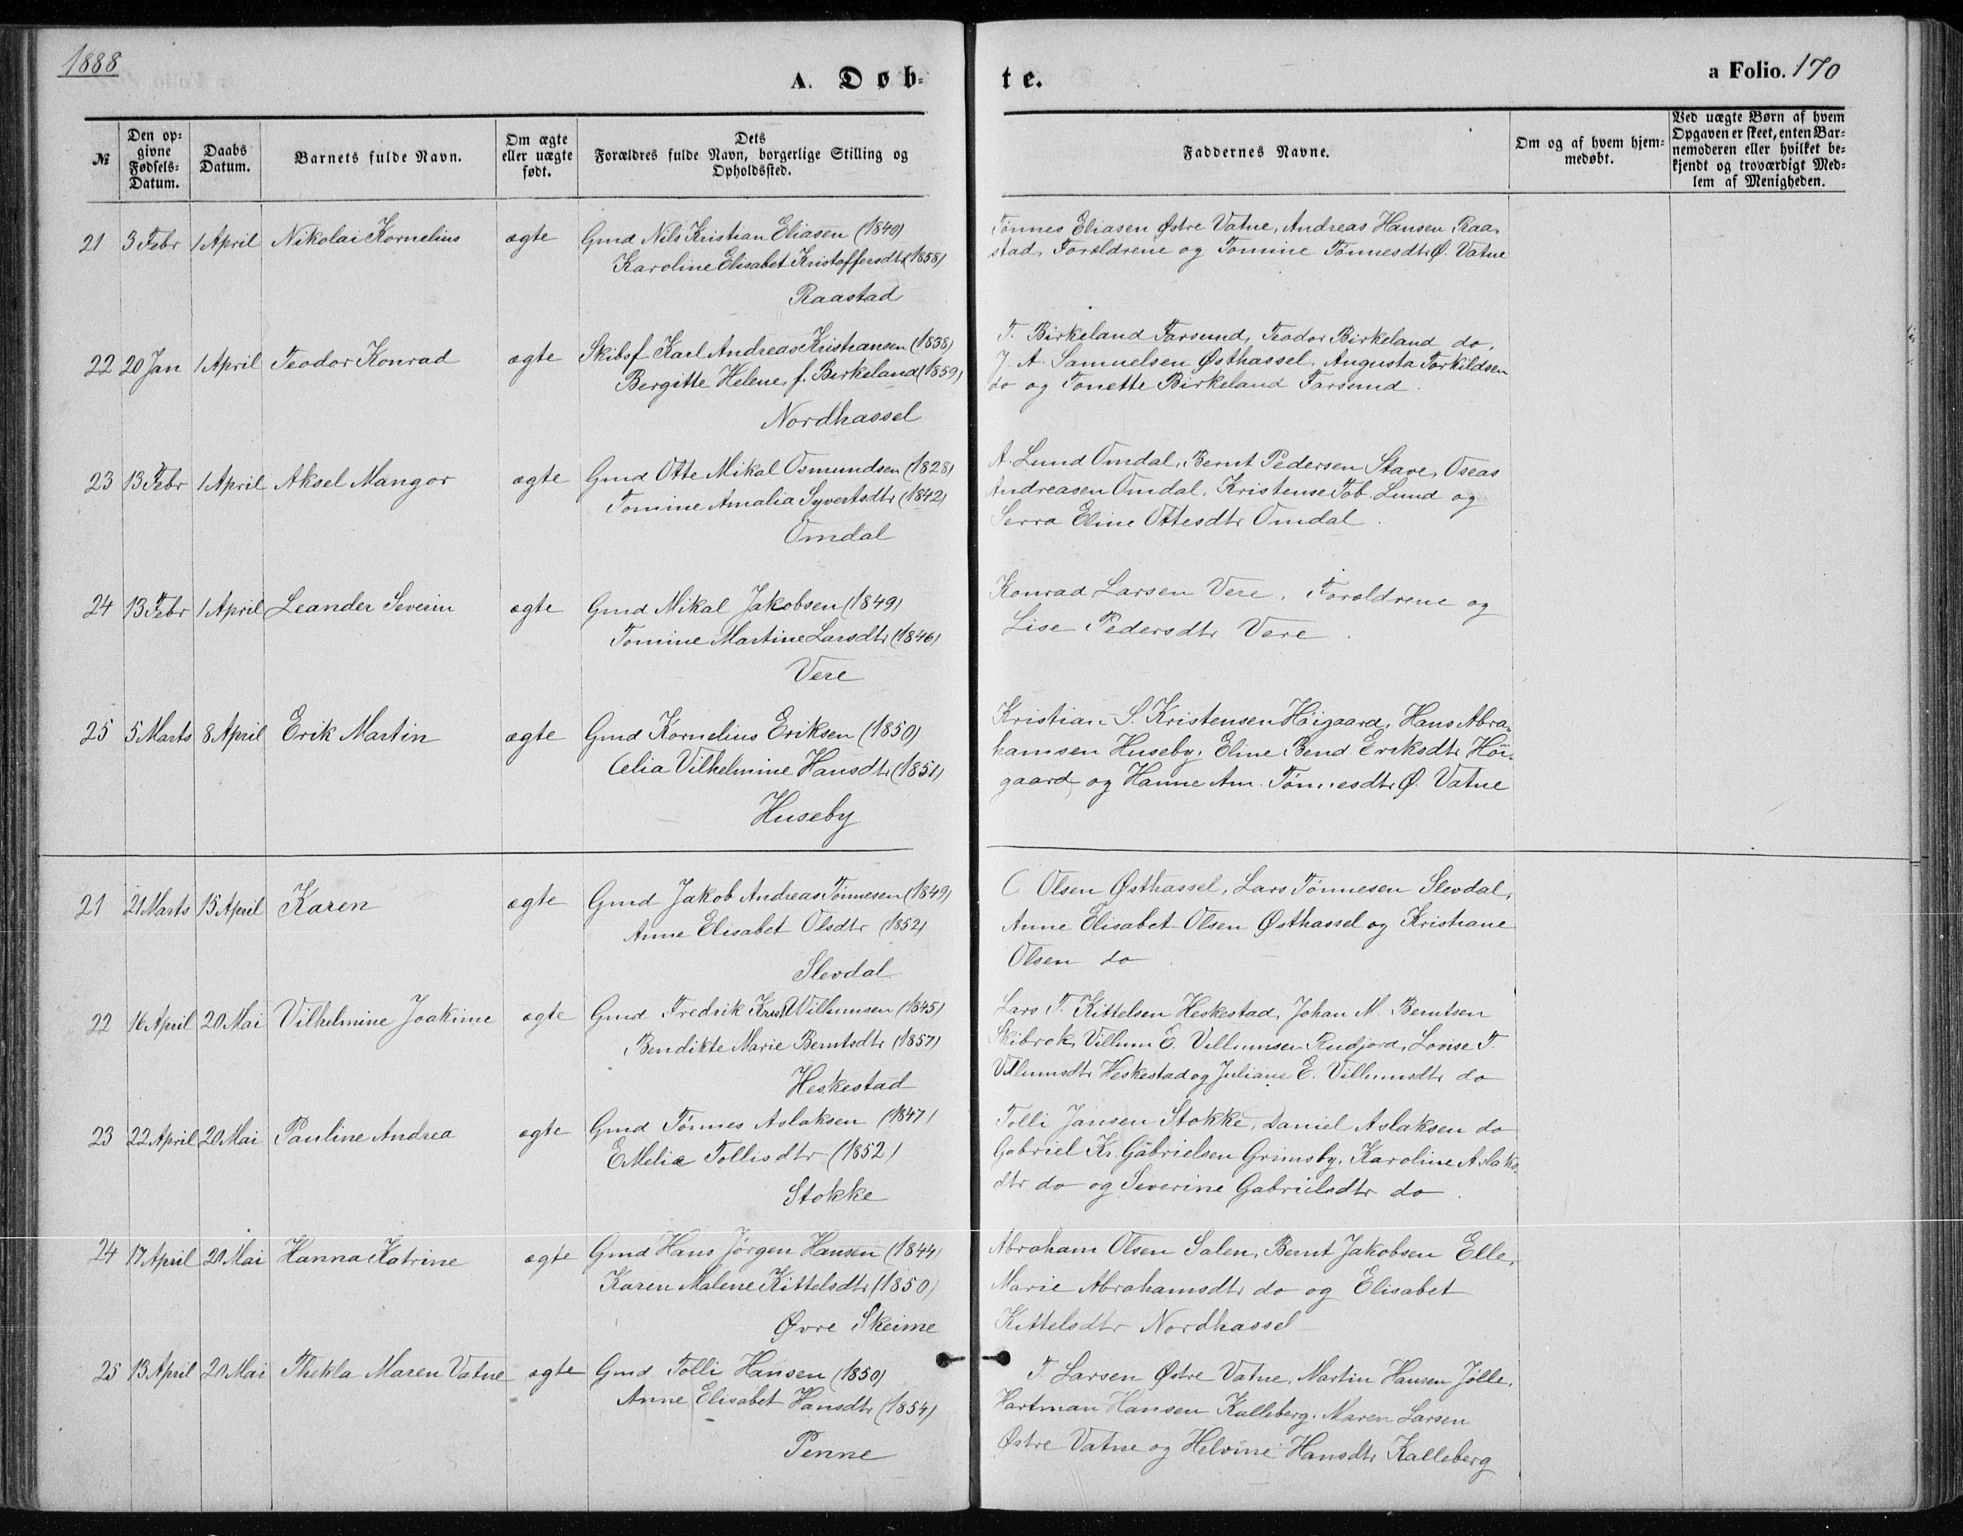 1888
A. Døb-
te.
a Folio. 170
№
Den op-
givne
Fødsels-
Datum.
Daabs
Datum.
Barnets fulde Navn.
Om ægte
eller uægte
født.
Dets
Forældres fulde Navn, borgerlige Stilling og
Opholdssted.
Faddernes Navne.
Om og af hvem hjem-
medøbt.
Ved uægte Børn af hvem
Opgaven er skeet, enten Bar-
nemoderen eller hvilket be-
kjendt og troværdigt Med-
lem af Menigheden.
21 3 Febr 1 April Nikolai Kornelius ægte Gmd Nils Kristian Eliasen (1849)
Karoline Elisabet Kristoffersdtr (1858)
Raastad
Tønnes Eliasen Østre Vatne, Andreas Hansen Raa-
stad, Forældrene og Tomine Tønnesdtr Ø. Vatne
22 20 Jan 1 April Teodor Konrad ægte Skibsf Karl Andreas Kristiansen (1838)
Bergitte Helene f. Birkeland (1859)
Nordhassel
T. Birkeland Farsund, Teodor Birkeland do,
J. A. Samuelsen Østhassel, Augusta Torkildsen
do og Tonette Birkeland Farsund.
23 13 Febr 1 April Aksel Mangor ægte Gmd Otte Mikal Osmundsen (1828)
Tomine Amalia Syvertsdtr (1842)
Omdal
A. Lund Omdal, Bernt Pedersen Stave, Oseas
Andreasen Omdal, Kristense Tob. Lund og
Serra Eline Ottesdtr Omdal.
24 13 Febr 1 April Leander Severin ægte Gmd Mikal Jakobsen (1849)
Tomine Martine Larsdtr (1846)
Vere
Konrad Larsen Vere, Forældrene og
Lise Pedersdtr Vere.
25 5 Marts 8 April Erik Martin ægte Gmd Kornelius Eriksen (1850)
Celia Vilhelmine Hansdtr (1851)
Huseby
Kristian S. Kristensen Høigaard, Hans Abra-
hamsen Huseby, Eline Bend Eriksdtr Høi-
gaard og Hanne Am. Tønnesdtr Ø. Vatne
21 21 Marts 15 April Karen ægte Gmd Jakob Andreas Tønnesen (1849)
Anne Elisabet Olsdtr (1852)
Slevdal
C Olsen Østhassel, Lars Tønnesen Slevdal,
Anne Elisabet Olsen Østhassel og Kristiane
Olsen do
22 16 April 20 Mai Vilhelmine Joakime ægte Gmd Fredrik Krist Villumsen (1845)
Bendikte Marie Berntsdtr (1857)
Heskestad
Lars T. Kittelsen Heskestad, Johan M. Berntsen
Skibrok, Villum E. Villumsen Rudjord, Lovise T.
Villumsdtr Heskestad og Juliane E. Villumsdtr do
23 22 April 20 Mai Pauline Andrea ægte Gmd Tønnes Aslaksen (1847)
EMelie Tollisdtr (1852)
Stokke
Tolli Jansen Stokke, Daniel Aslaksen do
Gabriel Kr. Gabrielsen Grimsby, Karoline Aslaks-
dtr do og Severine Gabrielsdtr do.
24 17 April 20 Mai Hanna Katrine ægte Gmd Hans Jørgen Hansen (1844)
Karen Malene Kittelsdtr (1850)
Øvre Skeime
Abraham Olsen Salen, Bernt Jakobsen Elle,
Marie Abrahamsdtr do og Elisabet
Kittelsdtr Nordhassel
25 13 April 20 Mai Thekla Maren Vatne ægte Gmd Tolli Hansen (1850)
Anne Elisabet Hansdtr (1854)
Penne
T Larsen Østre Vatne, Martin Hansen Jølle,
Hartman Hansen Kalleberg, Maren Larsen
Østre Vatne og Helvine Hansdtr Kalleberg